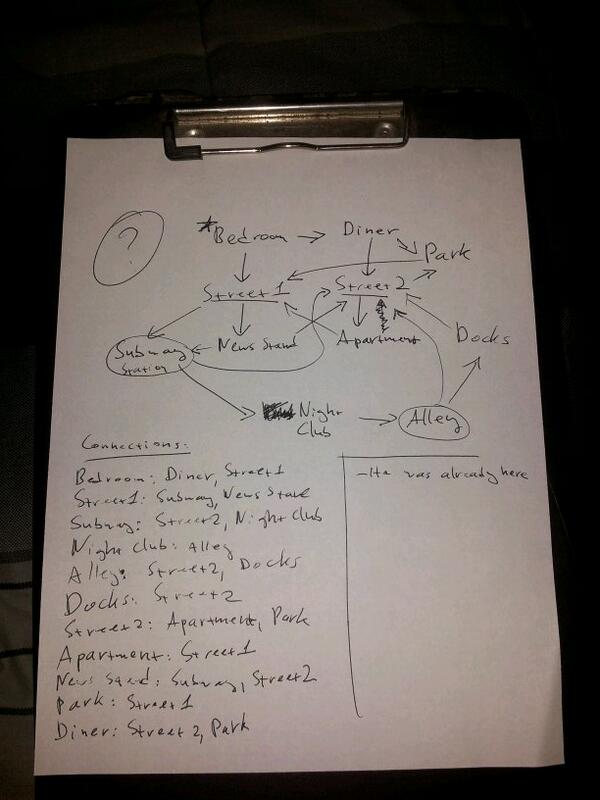 ?
*Bedroom → Diner
Park
Street1 Street2
Subway
Station
News Stand Apartment
Docks
Night
Club
Alley
Connections:
Bedroom: Diner, Street1
Street1: Subway, News Stand
Subway: Street2, Night Club
Night Club: Alley
Alley: Street2, Docks
Docks: Street2
Street2: Apartment, Park
Apartment: Street1
News Stand: Subway, Street2
Park: Street1
Diner: Street 2, Park
was already here